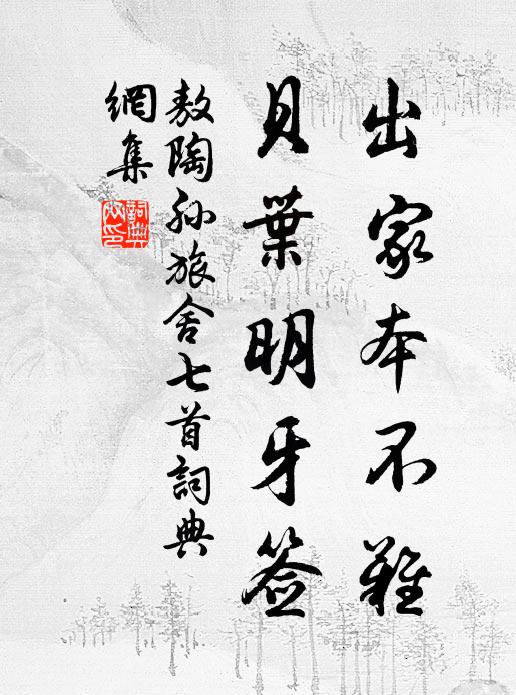 出家本不難
貝葉明牙签
敖陶孙旅舍七首詞典
網集
詞典網印